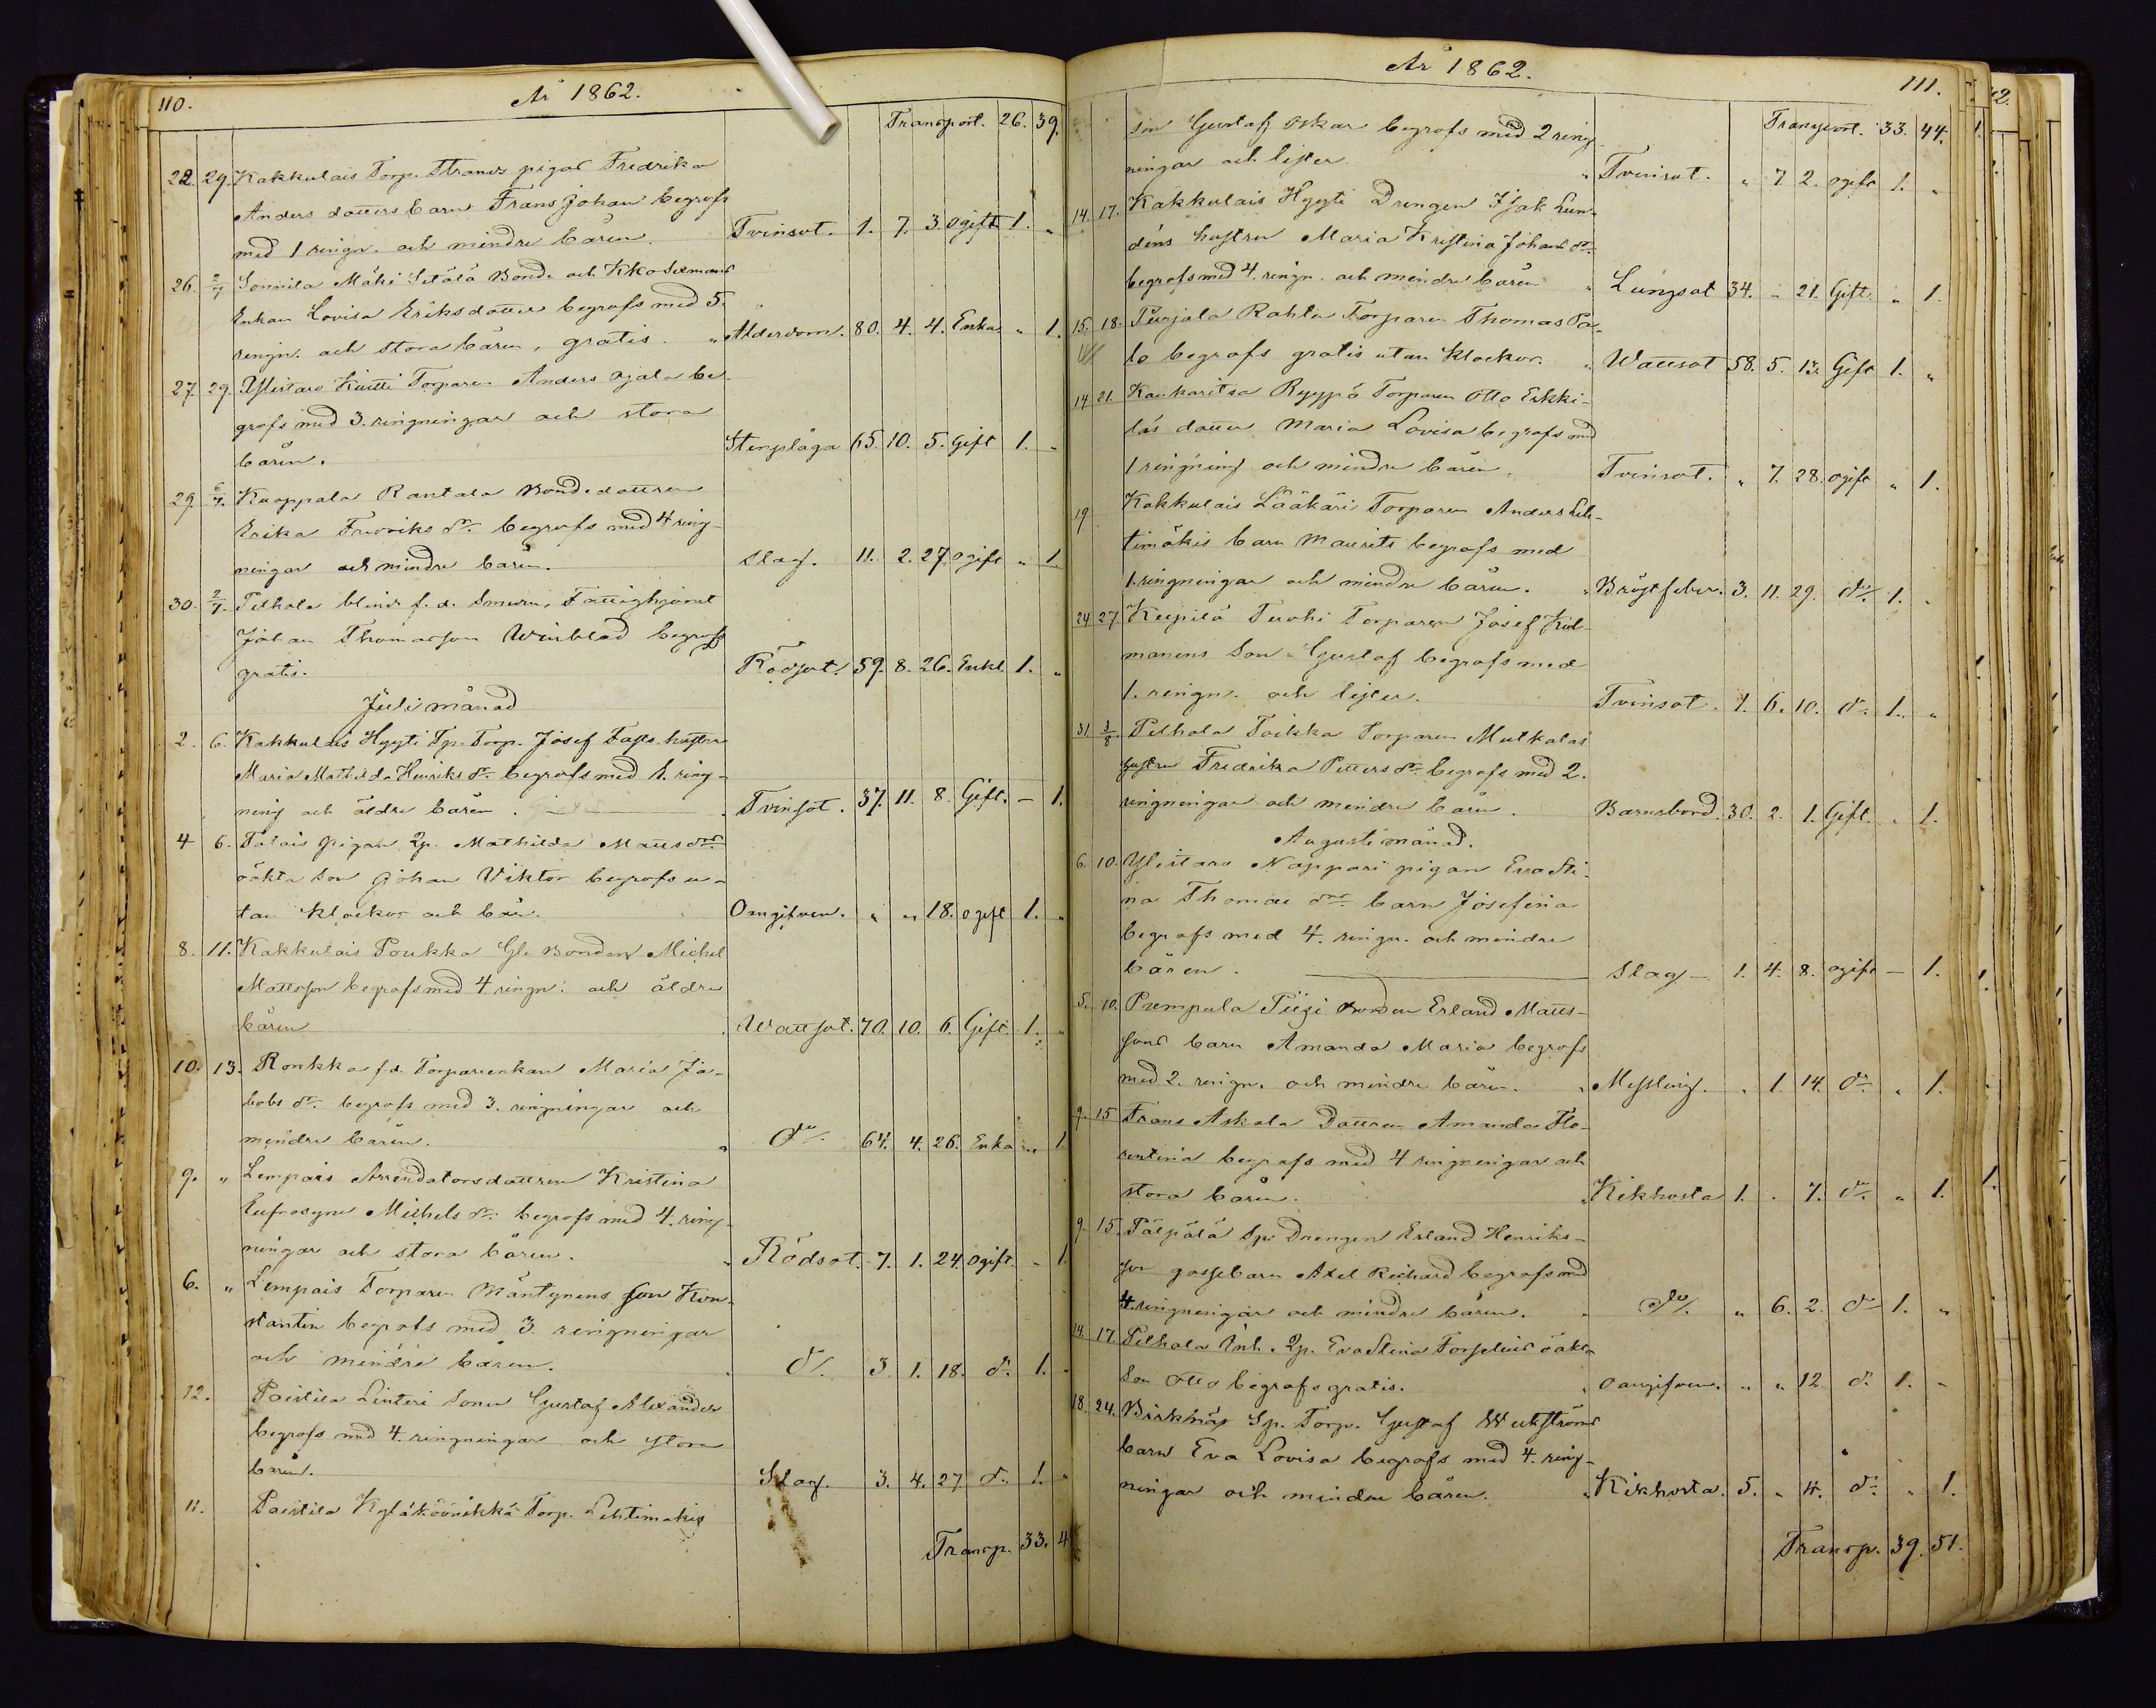 110.
År 1862.
Transport. 26. 39.
22. 29. Kakkulais Torp. Strands pigas Fredrika
Anders dotters barn Frans Johan begrofs
med 1 ringn. och mindre båren. Tvinsot. 1. 7. 3. ogift 1. "
26. 2/7 Sonnila Mäki Sitälä Bond. och
Enkan Lovisa Eriksdotter begrofs med 5.
ringn. och stora båren, gratis. " Ålderdom. 80. 4. 4. Enka " 1.
27. 29. Ylistaro Kuitti Torparen Anders Ojala be-
grofs med 3. ringningar och stora
båren. Stenplåga 65. 10. 5. Gift 1. "
29. 6/7. Kuoppala Rantala Bondedottren
Erika Fredriks dr. begrofs med 4 ring-
ningar och mindre båren. Slag. 11. 2. 27 ogift " 1.
30. 2/7. Pelhola blinde f.d. Smeden, Fattighjonet
Johan Thomasson Winblad begrofs
gratis. Rödsot. 59. 8. 26. Enkl. 1. "
Juli månad
2. 6. Kakkulais Hyyti Sp. Torp. Josef Fasts hustru
Maria Mathilda Henriks dr. begrofs med 1. ring-
ning och äldre båren. Tvinsot. 37. 11. 8. Gift. – 1.
4 6. Talais pigan Qp. Mathilda Matts drs
oäkta son Johan Viktor begrofs u-
tan klockor och bår. Oangifven. " " 18. ogift 1. "
8. 11. Kakkulais Poukka Gl. Bonden Michel
Mattsson begrofs med 4 ringn. och äldre
båren Wattsot. 70. 10. 6. Gift 1. "
10. 13. Ronkka f.d. Torpareenkan Maria Ja-
kobs dr. begrofs med 3. ringningar och
mindre båren. " do 64. 4. 26. Enka " 1.
9. " Lempois Arrendatorsdottren Kristina
Eufrosyne Michels dr. begrofs med 4. ring-
ningar och stora båren. Rödsot. 7. 1. 24. ogift. " 1.
6. " Lempois Torparen Mäntynens son Kon-
stantin begrofs med 3. ringningar
och mindre båren. do. 3. 1. 18. do. 1. "
12. Paistila Linteri Sonen Gustaf Alexander
begrofs med 4. ringningar och stora
båren. Slag. 3. 4. 27 do. 1. "
11. Paistila Torp. Lehtimäkis
Transp. 33. 4
År 1862.
111.
Transport. 33. 44.
son Gustaf Oskar begrofs med 2 ring-
ningar och lister. " Tvinsot. " 7 2. ogift 1. "
14. 17. Kakkulais Hyyti Drengen Isak Lun-
déns hustru Maria Kristina Johans dr.
begrofs med 4. ringn. och mindre båren " Lungsot 34. " 21. Gift. " 1.
15. 18. Punjala Rahla Torparen Thomas Pa-
lo begrofs gratis utan klockor. " Wattsot 58. 5. 13. Gift 1. "
14 21. Kaukaritsa Ryyppö Torparen Otto Erkki-
läs dotter Maria Lovisa begrofs med
1 ringning och mindre båren. Tvinsot. " 7. 28. ogift " 1.
19 Kakkulais Lääkäri Torparen Anders Leh-
timäkis barn Maurits begrofs med
1. ringningar och mindre båren. " Bröstfeber. 3. 11. 29. do. 1. "
24 27 Keipilä Tuohi Torparen Josef Kul-
manens Son Gustaf begrofs med
1. ringn. och lister. Tvinsot. 1. 6. 10. do. 1. "
31 3/8. Pelhola Toikka Torparen Mutkalas
hustru Fredrika Petters dr. begrofs med 2.
ringningar och mindre båren. Barnsbörd. 30. 2. 1. Gift. " 1.
Augusti månad.
6. 10. Ylistaro Nappari pigan Eva Sti-
na Thomae drs. barn Josefina
begrofs med 4. ringn. och mindre
båren. Slag – 1. 4. 8. ogift – 1.
5. 10. Prempula Bonden Erland Matts-
sons barn Amanda Maria begrofs
med 2. ringn. och mindre båren. " Messling. " 1. 14. do " 1.
9. 15 Frans Askola Dottren Amanda Flo-
rentina begrofs med 4 ringningar och
stora båren. " Kikhosta 1. " 7. do " 1.
9. 15. Pälpälä Sp. Drengen Erland Henriks-
son gossebarn Axel Richard begrofs med
4. ringningar och mindre båren. " do. " 6. 2. do 1. "
14. 17. Pelhola Inh. Qp. Eva Stina Forselius oäkta
son Otto begrofs gratis. " oangifven. " " 12 do. 1. "
18. 24. Birknäs Sp. Torp. Gustaf Wikströms
barn Eva Lovisa begrofs med 4. ring-
ningar och mindre båren. " Kikhosta. 5. " 4. do. " 1.
Transp. 39. 51.